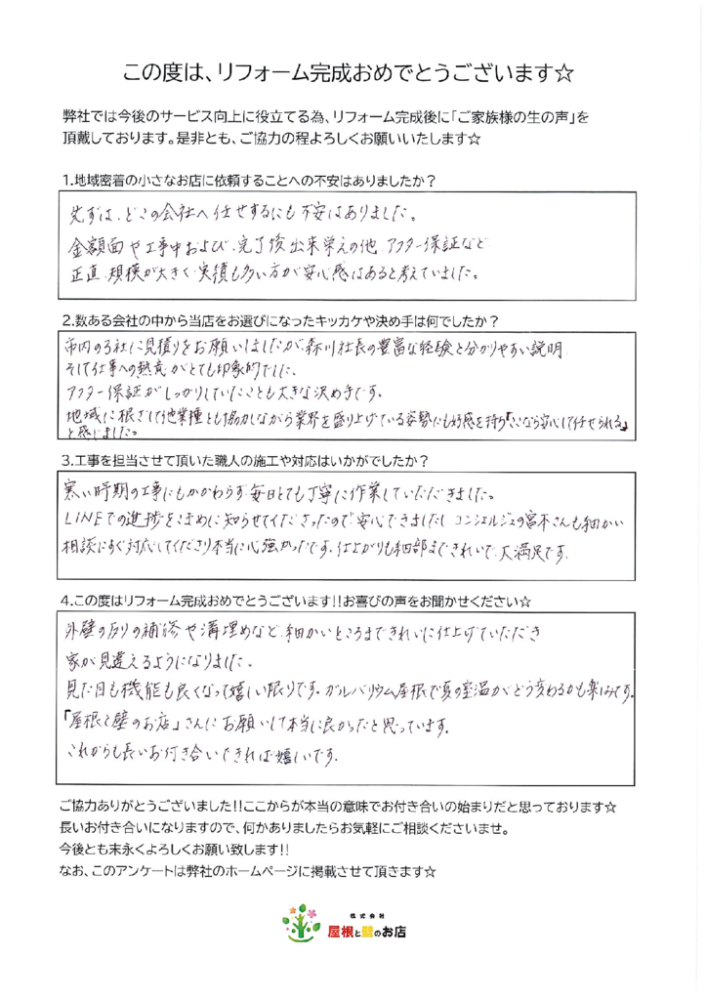 この度は、リフォーム完成おめでとうございます☆
弊社では今後のサービス向上に役立てる為、リフォーム完成後に「ご家族様の生の声」を
頂戴しております。是非とも、ご協力の程よろしくお願いいたします☆
1.地域密着の小さなお店に依頼することへの不安はありましたか？
先ずは、どこの会社へ任せするにも不安はありました。
金額面や工事中および、完了後出来栄えの他、アフター保証など
正直、規模が大きく実績も多い方が安心感はあると考えていました。
2.数ある会社の中から当店をお選びになったキッカケや決め手は何でしたか？
市内の3社に見積りをお願いしましたが、森川社長の豊富な経験と分かりやすい説明
そして仕事への熱意がとても印象的でした。
アフター保証がしっかりしていたことも大きな決め手です。
地域に根ざして他業種とも協力しながら業界を盛り上げている姿勢にも好感を持ち「ここなら安心して任せられる」
と感じました。
3.工事を担当させて頂いた職人の施工や対応はいかがでしたか？
寒い時期の工事にもかかわらず毎日とても丁寧に作業していただきました。
LINEでの進捗をこまめに知らせてくださったので安心できましたし コンシェルジュの宮本さんも細かい
相談にすぐ対応してくださり本当に心強かったです。仕上がりも細部まできれいで、大満足です。
4.この度はリフォーム完成おめでとうございます!!お喜びの声をお聞かせください☆
外壁の反りの補修や溝埋めなど、細かいところまできれいに仕上げていただき
家が見違えるようになりました。
見た目も機能も良くなって嬉しい限りです。ガルバリウム屋根で夏の室温がどう変わるかも楽しみです。
「屋根と壁のお店」さんにお願いして本当に良かったと思っています。
これからも長いお付き合いできれば嬉しいです。
ご協力ありがとうございました!!ここからが本当の意味でお付き合いの始まりだと思っております☆
長いお付き合いになりますので、何かありましたらお気軽にご相談くださいませ。
今後とも末永くよろしくお願い致します!!
なお、このアンケートは弊社のホームページに掲載させて頂きます☆
株式会社
屋根と壁のお店